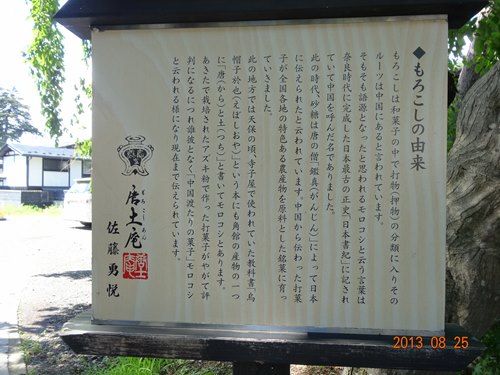 ◆もろこしの由来
もろこしは和菓子の中で打物(押物)の分類に入りその
ルーツは中国にあると言われています。
そもそも語源となったと思われるモロコシと云う言葉は
奈良時代に完成した日本最古の正史「日本書紀」に記され
ていて中国を呼んだ名でありました。
此の時代、砂糖は唐の僧「鑑真(がんじん)」によって日本
に伝えられたと云われています。中国から伝わった打菓
子が全国各地の特色ある農産物を原料とした銘菓に育っ
ていきました。
此の地方では天保の頃、寺子屋で使われていた教科書「烏
帽子於也(えぼしおや)」という本にも角館の産物の一つ
に「唐(から)と土(つち)」と書いてモロコシとあります。
あきたで栽培されたアズキ粉で作った打菓子がやがて評
判になるにつれ誰彼となく「中国渡たりの菓子」モロコシ
と云われる様になり現在まで伝えられています。
唐土庵
もろこしあん
佐藤勇悦
2013 08 25